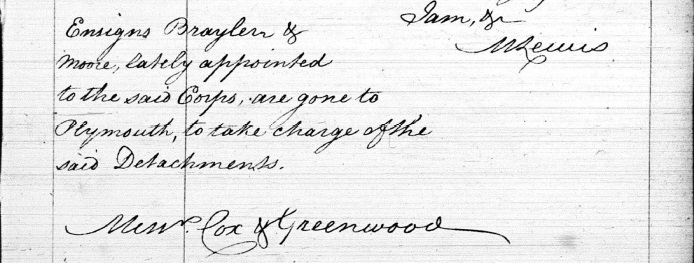 I am, &c
M Lewis
Ensigns Braylen &
Moore, lately appointed
to the said Corps, are gone to
Plymouth, to take charge of the
said Detachments.
Messrs. Cox & Greenwood